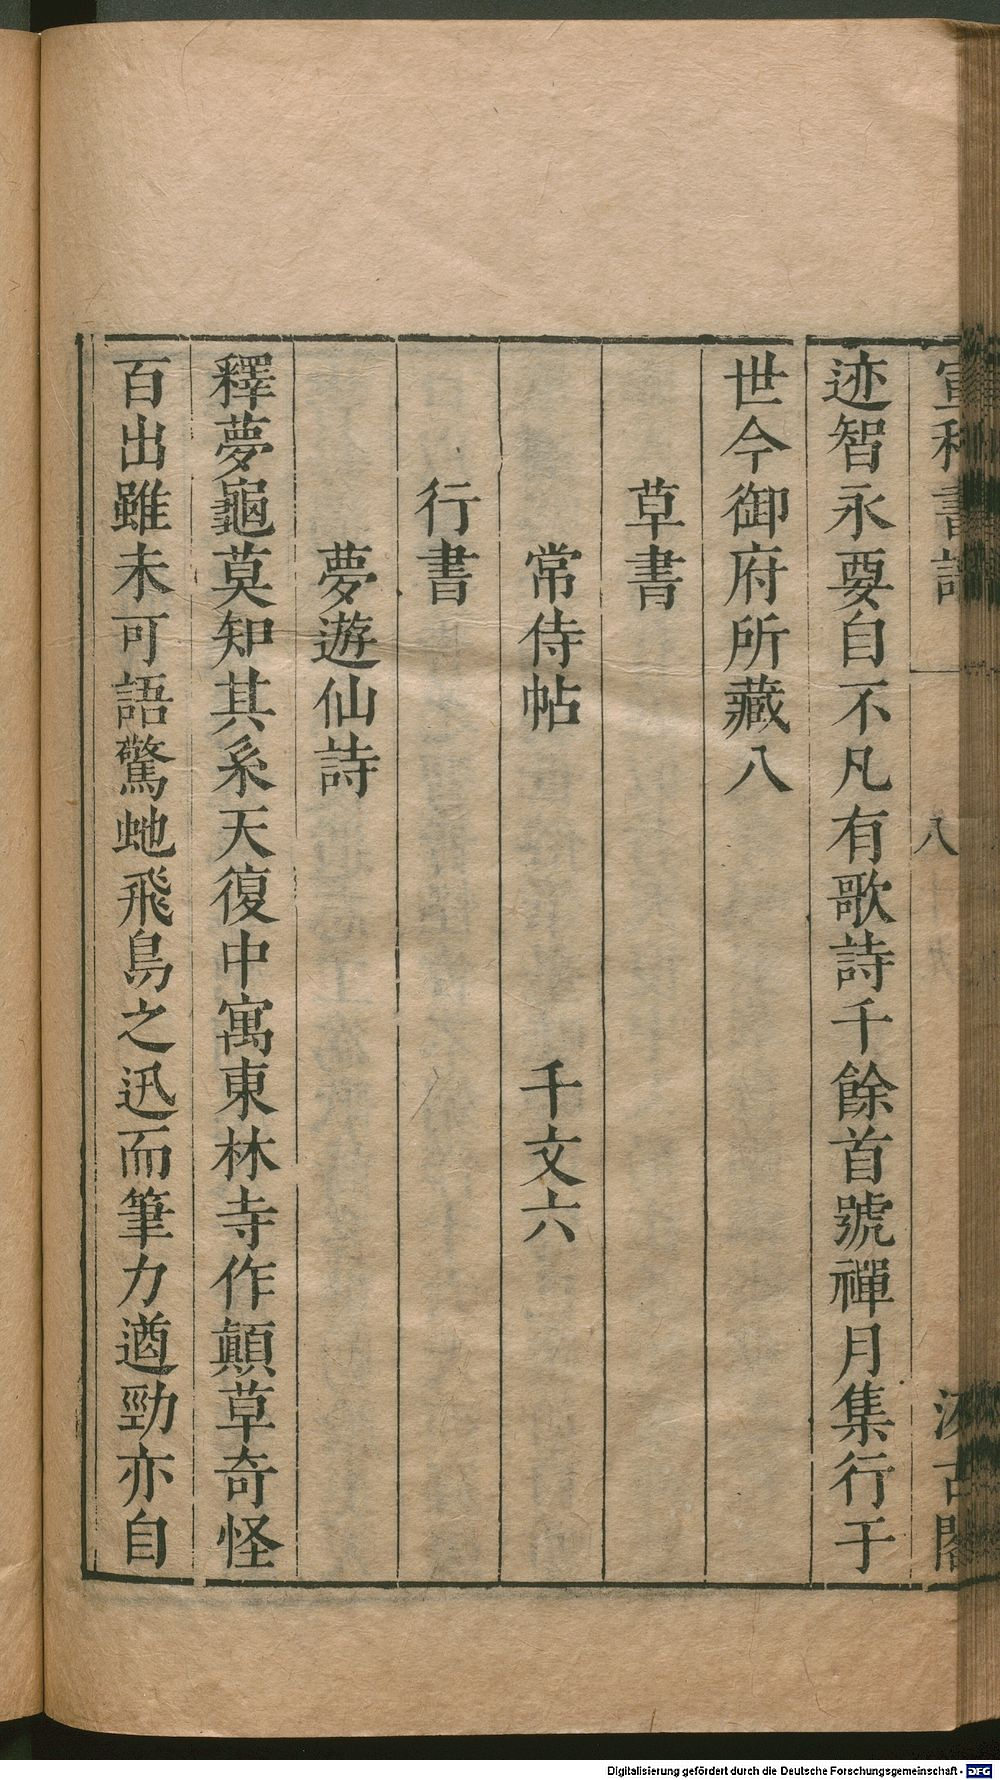 宣和書譜 八 十九 汲古閣
迹智永要自不凡有歌詩千餘首號禪月集行于
世今御府所藏八
草書
常侍帖 千文六
行書
夢遊仙詩
釋夢龜莫知其系天復中寓東林寺作顛草奇怪
百出雖未可語驚虵飛鳥之迅而筆力遒勁亦自
Digitalisierung gefördert durch die Deutsche Forschungsgemeinschaft - DFG